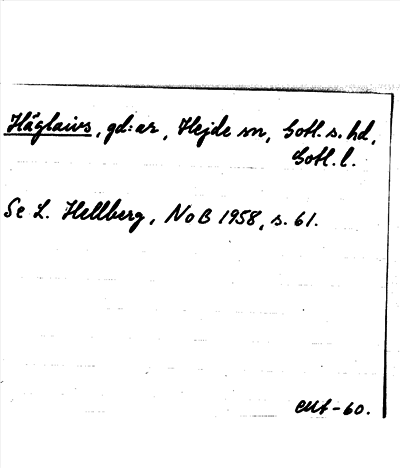 Häglaivs, gd:ar, Hejde sn, Gotl. s. hd,
Gotl. l.
Se L. Hellberg, NoB 1958, s. 61.